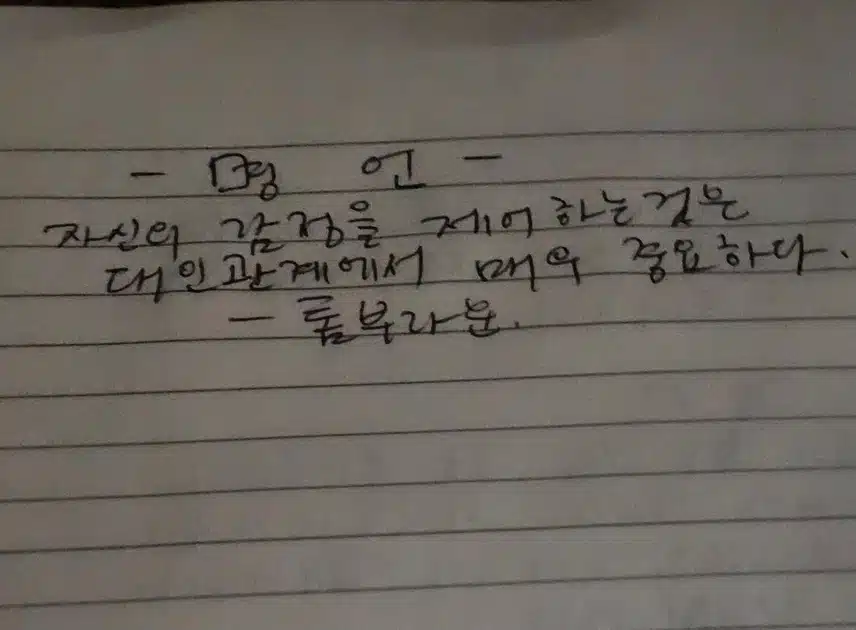 - 명 언 -
자신의 감정을 제어하는것은
대인관계에서 매우 중요하다.
- 톰부라운.